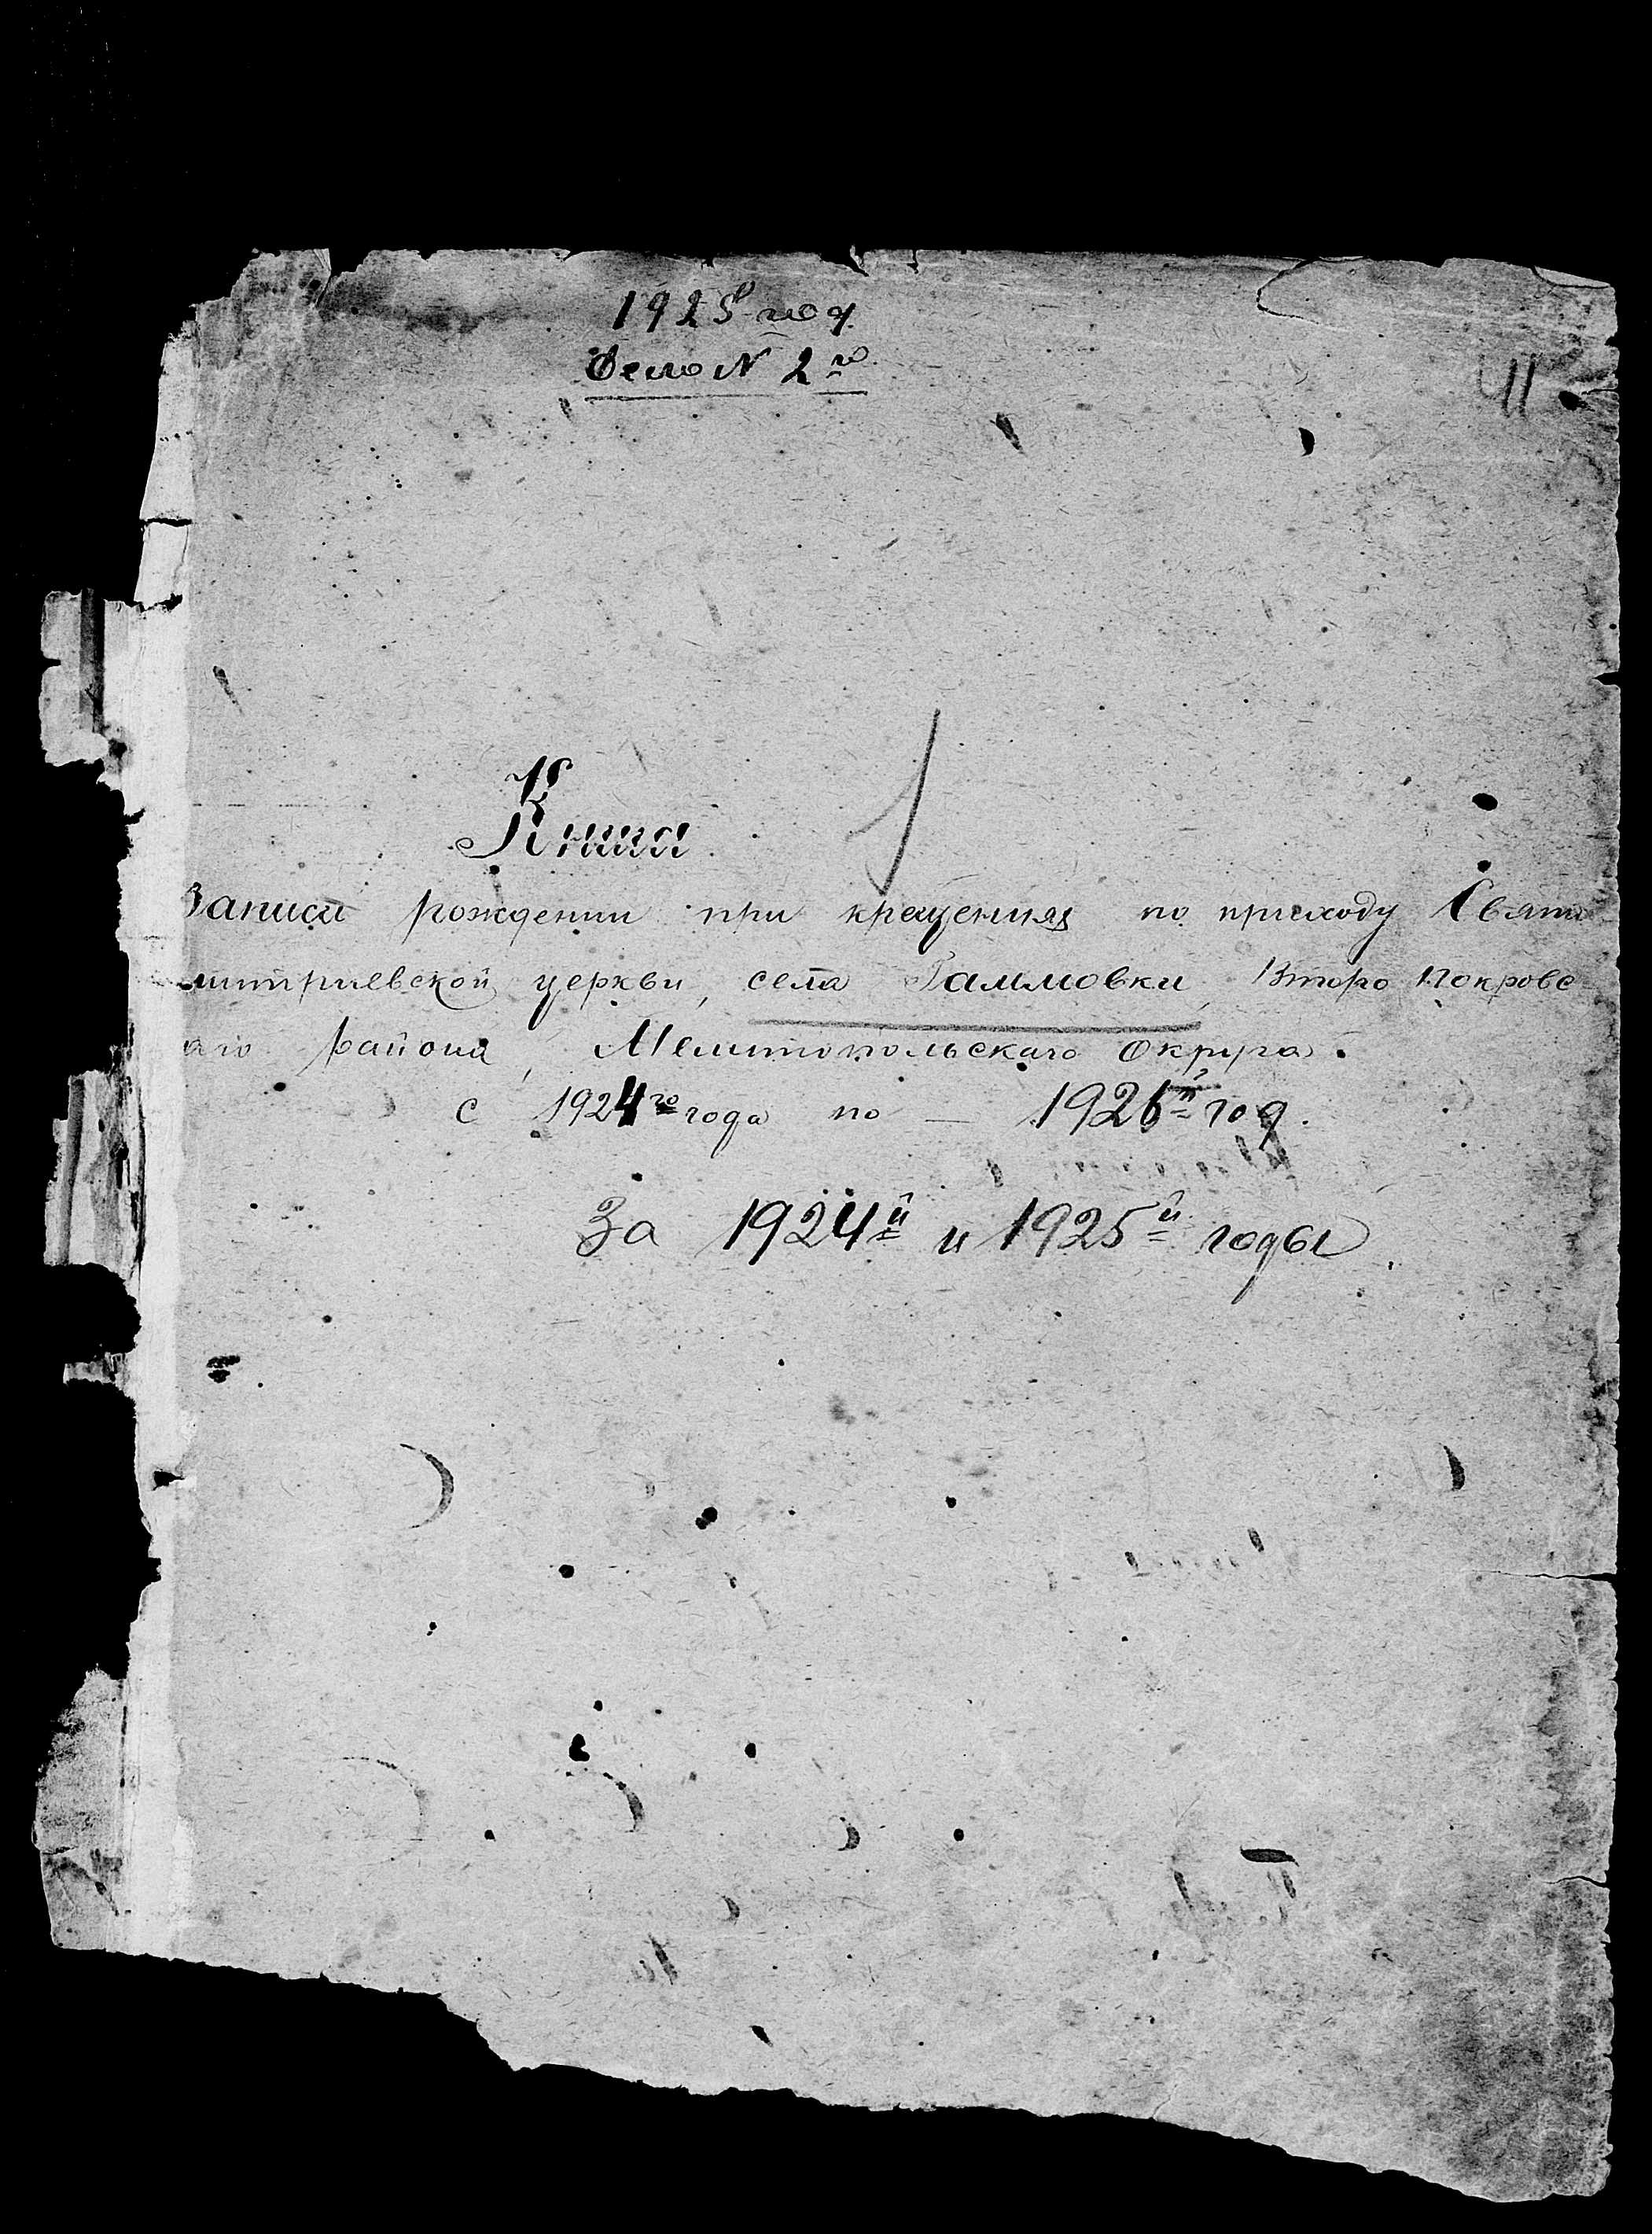 1925 год
Дело N 2го
41
Книга
Записи рождении при крещениях по приходу Свято
митриевской церкви, села Гаммовки, Второ Покровс-
аго района, Мелитопольскаго Округа.
с 1924го года по — 1926й год.
За 1924й и 1925й годы